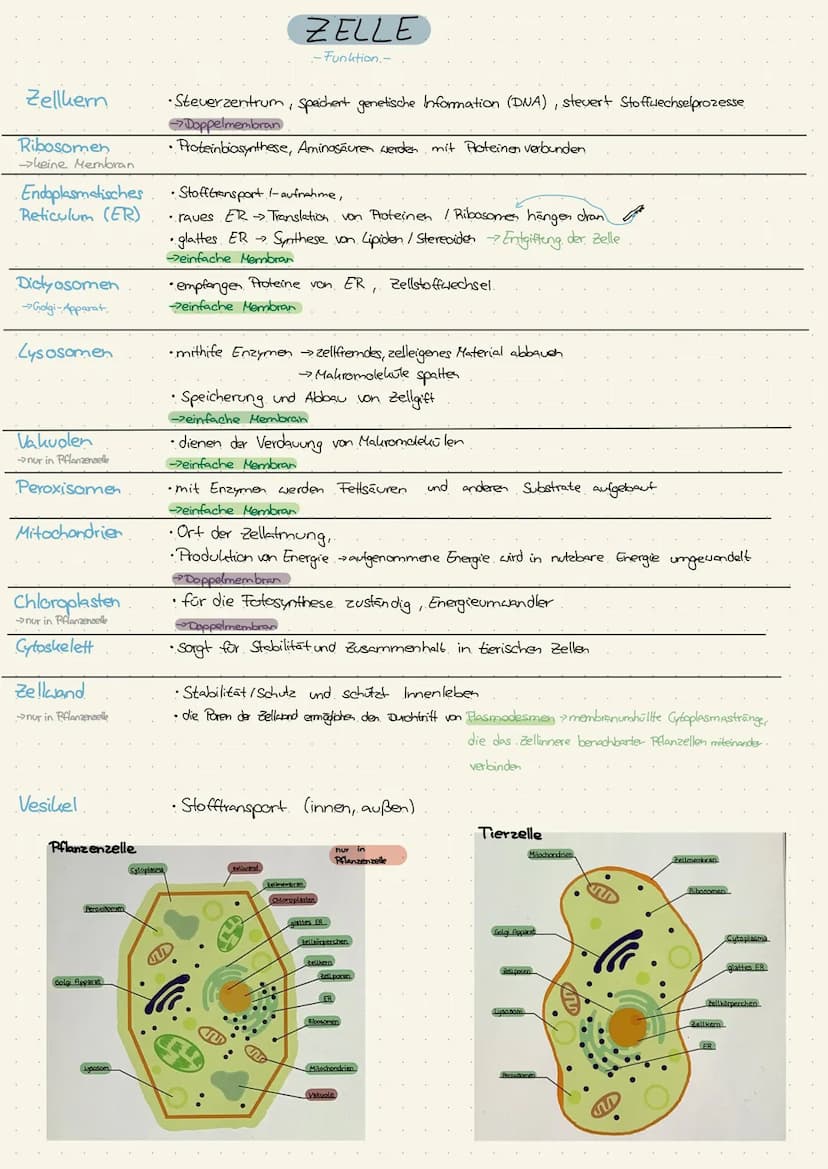 ZELLE
- Funktion -
Zellkern
• Steuerzentrum, speichert genetische Information (DNA), steuert Stoffwechselprozesse
→Doppelmembran
Ribosomen
→keine Membran
• Proteinbiosynthese, Aminosäuren werden mit Proteinen verbunden
Endoplasmatisches
Reticulum (ER)
• Stofftransport /-aufnahme,
• raues ER → Translation von Proteinen / Ribosomen hängen dran
• glattes ER → Synthese von Lipiden / Stereoiden → Entgiftung der Zelle
→einfache Membran
Dictyosomen
→Golgi-Apparat
• empfangen Proteine von ER, Zellstoffwechsel
→einfache Membran
Lysosomen
• mithife Enzymen → zellfremdes, zelleigenes Material abbauen
→ Makromoleküle spalten
• Speicherung und Abbau von Zellgift
→einfache Membran
Vakuolen
→nur in Pflanzenzelle
• dienen der Verdauung von Makromolekülen
→einfache Membran
Peroxisomen
• mit Enzymen werden Fettsäuren und anderen Substrate aufgebaut
→einfache Membran
Mitochondrien
• Ort der Zellatmung,
• Produktion von Energie → aufgenommene Energie wird in nutzbare Energie umgewandelt
→Doppelmembran
Chloroplasten
→nur in Pflanzenzelle
• für die Fotosynthese zuständig, Energieumwandler
→Doppelmembran
Cytoskelett
• sorgt für Stabilität und Zusammenhalt in tierischen Zellen
Zellwand
→nur in Pflanzenzelle
• Stabilität / Schutz und schützt Innenleben
• die Poren der Zellwand ermöglichen den Durchtritt von Plasmodesmen → membranumhüllte Cytoplasmastränge,
die das Zellinnere benachbarter Pflanzellen miteinander
verbinden
Vesikel
• Stofftransport (innen, außen)
Pflanzenzelle
nur in
Pflanzenzelle
Cytoplasma
Zellwand
Zellmembran
Chloroplasten
Peroxisomen
glattes ER
Zellkörperchen
Zellkern
Zellporen
Golgi Apparat
ER
Ribosomen
Lysosom
Mitochondrien
Vakuole
Tierzelle
Mitochondrien
Zellmembran
Ribosomen
Golgi Apparat
Cytoplasma
Zellporen
glattes ER
Lysosom
Zellkörperchen
Zellkern
ER
Peroxisomen